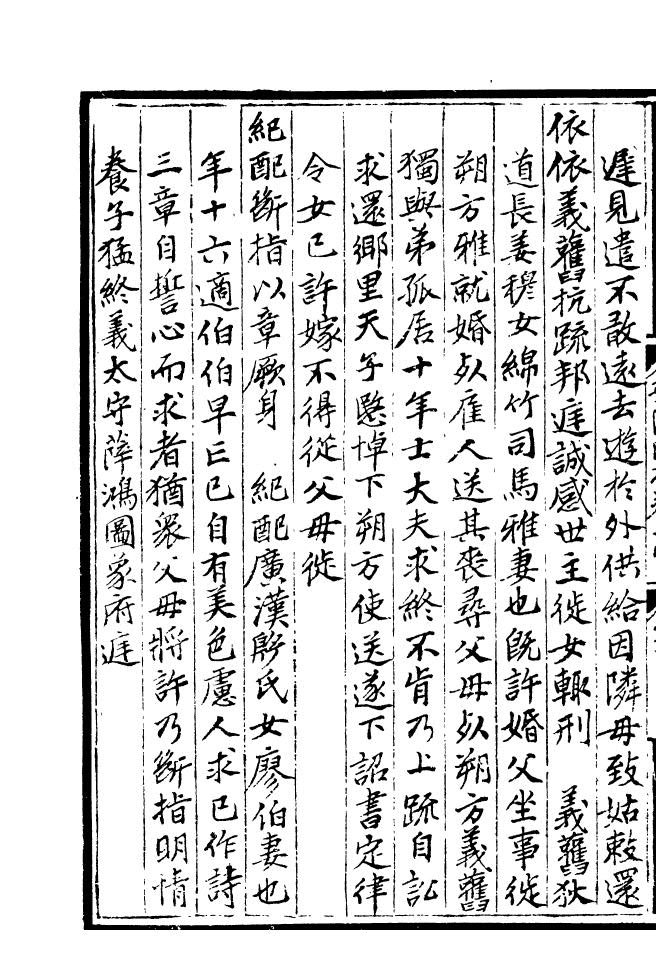 遅見遣不敢遠去遊於外供給因隣母致姑敕還
依依義舊抗疏邦庭誠感世主徙女輙刑　義舊狄
道長姜穆女綿竹司馬雅妻也旣許婚父坐事徙
朔方雅就婚歿雇人送其喪尋父母歿朔方義舊
獨與弟孤居十年士大夫求終不肯乃上疏自訟
求還鄉里天子愍悼下朔方使送遂下詔書定律
令女已許嫁不得從父母徙
紀配斷指以章厥身　紀配廣漢殷氏女廖伯妻也
年十六適伯伯早亡己自有美色慮人求己作詩
三章自誓心而求者猶衆父母將許乃斷指明情
養子猛終義太守薛鴻圖象府庭